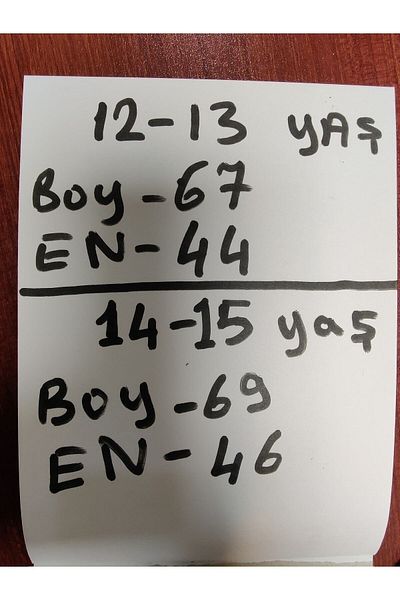 12-13 YAŞ
Boy-67
EN-44
14-15 yaş
Boy-69
EN-46